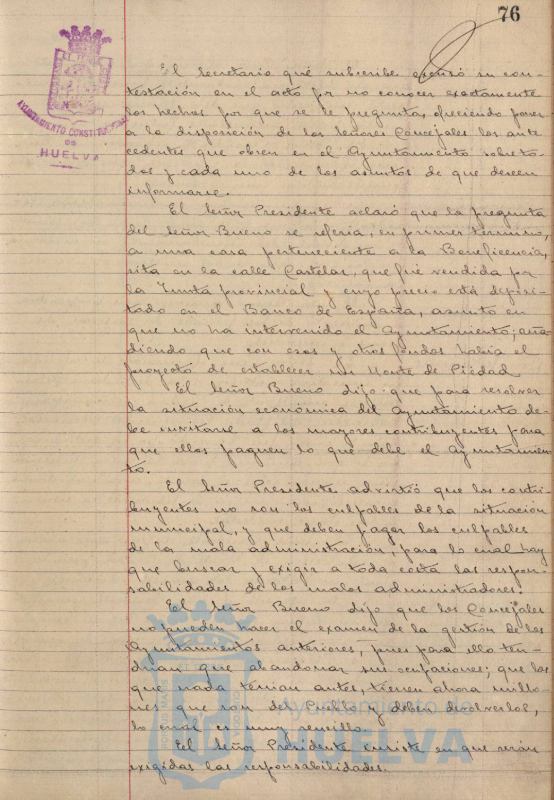 76
AYUNTAMIENTO CONSTITUCIONAL
DE
HUELVA
El Secretario que subscribe excusó su con-
testación en el acto por no conocer exactamente
los hechos por que se le pregunta, ofreciendo poner
a la disposición de los señores Concejales los ante
cedentes que obren en el Ayuntamiento sobre to-
dos y cada uno de los asuntos de que deseen
informarse.
El Señor Presidente aclaró que la pregunta
del Señor Bueno se refería, en primer término,
a una casa perteneciente a la Beneficencia,
sita en la calle Castelar, que fué vendida por
la Junta provincial y cuyo precio está deposi-
tado en el Banco de España, asunto en
que no ha intervenido el Ayuntamiento; aña
diendo que con esos y otros fondos había el
proyecto de establecer un Monte de Piedad
El Señor Bueno dijo: que para resolver
la situación económica del Ayuntamiento de-
be invitarse a los mayores contribuyentes para
que ellos paguen lo que debe el Ayuntamien
to.
El Señor Presidente advirtió que los contri-
buyentes no son los culpables de la situación
municipal, y que deben pagar los culpables
de la mala administración, para lo cual hay
que buscar y exigir a toda costa las respon-
sabilidades de los malos administradores.
El Señor Bueno dijo que los Concejales
no pueden hacer el examen de la gestión de los
Ayuntamientos anteriores, pues para ello ten-
drían que abandonar sus ocupaciones; que los
que nada tenían antes, tienen ahora millo-
nes que son del Pueblo y deben devolverlos,
lo cual es muy sencillo.
El Señor Presidente insiste en que serán
exigidas las responsabilidades.
Ayuntamiento de
HUELVA